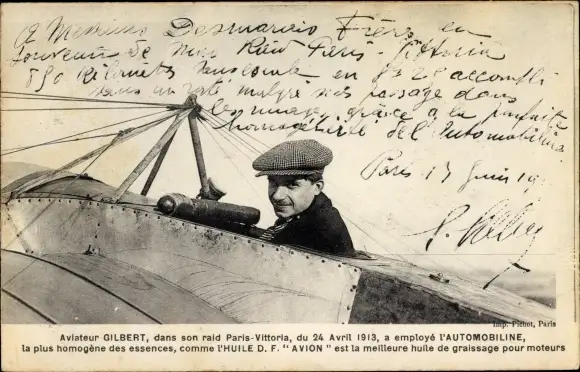 A Messieurs Desmarais Frères en
souvenir de mon Raid Paris-Vittoria
Kilomètres en 8h 28 accompli
sans un raté malgré mes passage dans
les nuages, grâce a la parfaite
homogénéité de l'Automobiline
Paris 17 Juin 19
Imp. Fichot, Paris
Aviateur GILBERT, dans son raid Paris-Vittoria, du 24 Avril 1913, a employé l'AUTOMOBILINE,
la plus homogène des essences, comme l'HUILE D. F. "AVION" est la meilleure huile de graissage pour moteurs